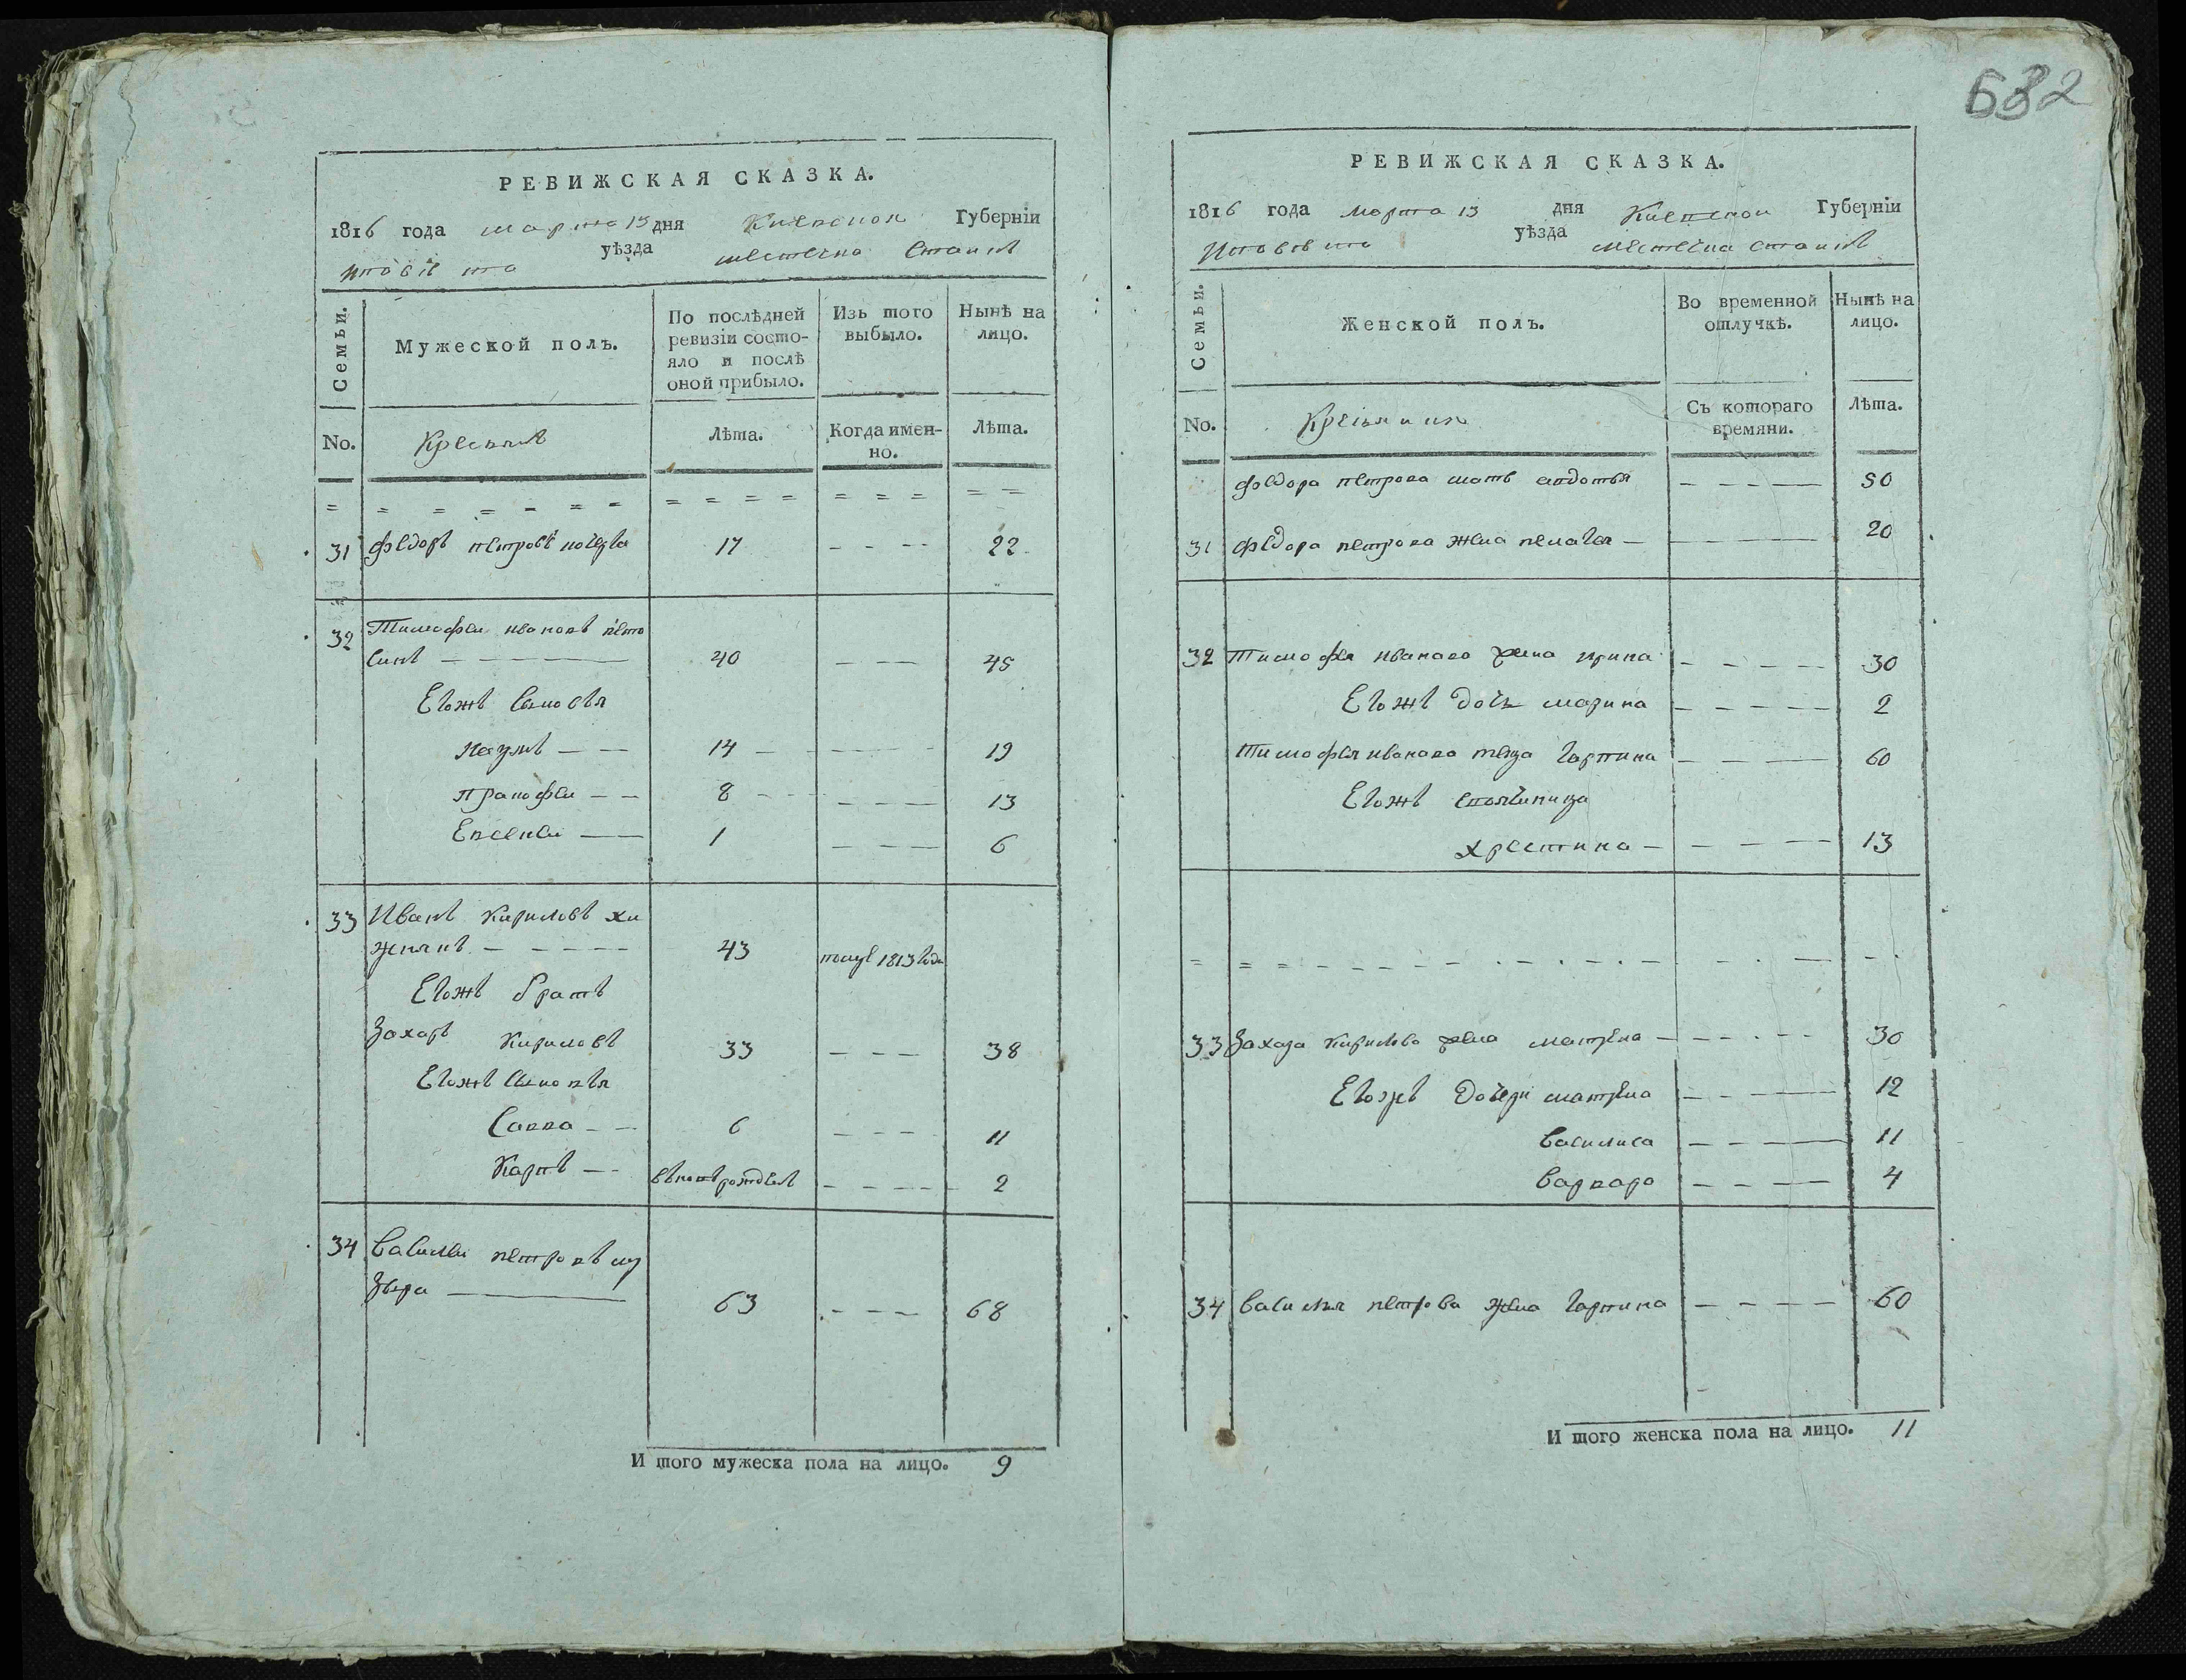 632
РЕВИЖСКАЯ СКАЗКА.
1816 года марта 13 дня Киевской Губерніи
уѣзда местечка
Семьи. Мужеской полъ. По послѣдней ревизіи состояло и послѣ оной прибыло. Изъ того выбыло. Нынѣ на лицо.
No. Лѣта. Когда именно. Лѣта.
31 Федоръ петровъ 17 22
32 Тимофеи ивановъ
40 45
Егожъ сыновья
наумъ 14 19
8 13
Евсеи 1 6
33 Иванъ кириловъ хи
жнякъ 43 1813 года
Егожъ братъ
Захаръ кириловъ 33 38
Егожъ сыновья
Савва 6 11
Карпъ 2
34 василеи петровъ
63 68
И того мужеска пола на лицо. 9
РЕВИЖСКАЯ СКАЗКА.
1816 года марта 13 дня Киевской Губерніи
уѣзда местечка
Семьи. Женской полъ. Во временной отлучкѣ. Нынѣ на лицо.
No. Съ котораго времяни. Лѣта.
федора петрова мать 50
31 федора петрова жена 20
32 тимофея иванова жена ирина 30
Егожъ дочь марина 2
тимофея иванова теща гарпина 60
Егожъ своячиница
христина 13
33 Захара кирилова жена матрена 30
Егожъ дочери матрена 12
василиса 11
варвара 4
34 василия петрова жена гарпина 60
И того женска пола на лицо. 11